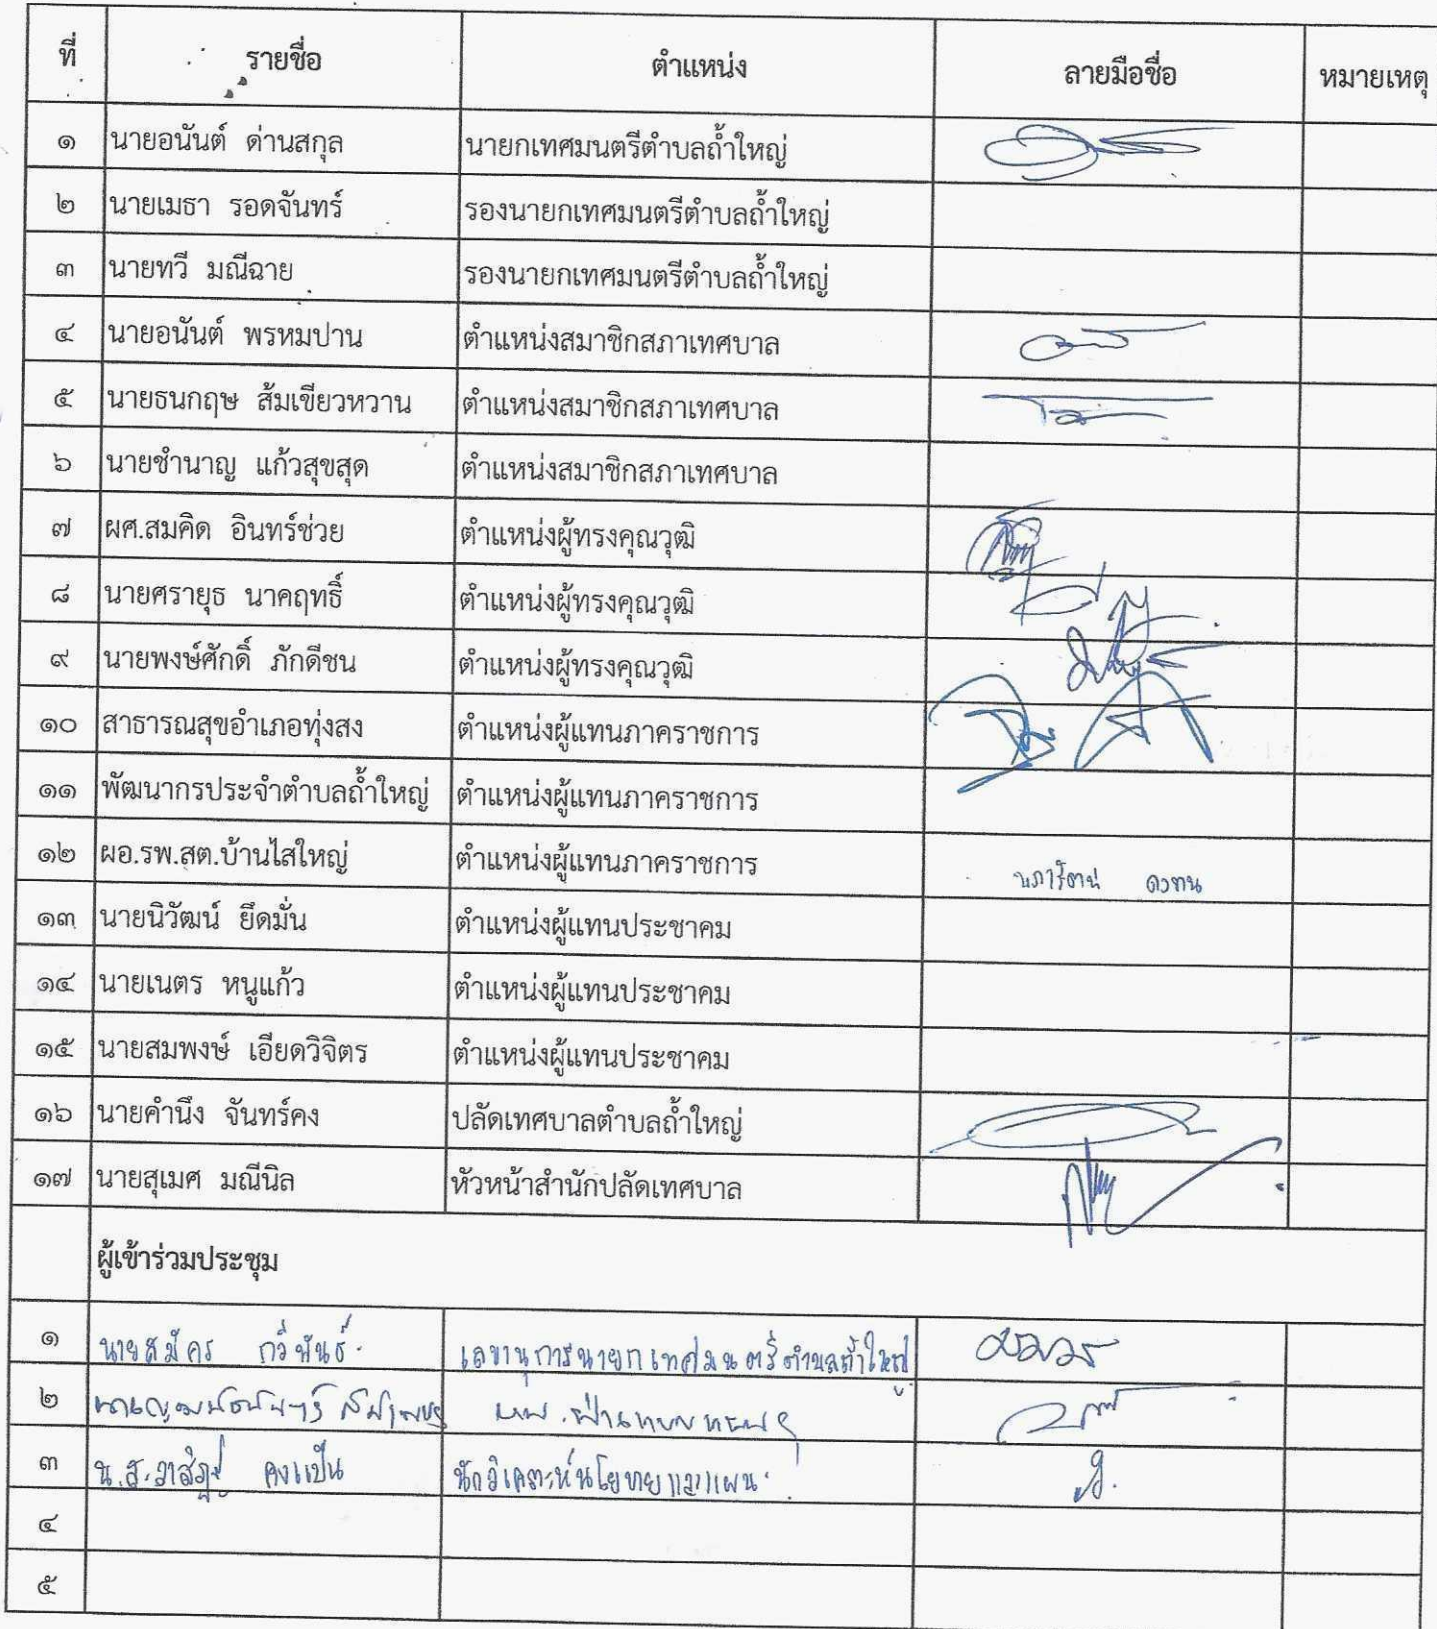 ที่ รายชื่อ ตำแหน่ง ลายมือชื่อ หมายเหตุ
๑ นายอนันต์ ด่านสกุล นายกเทศมนตรีตำบลถ้ำใหญ่
๒ นายเมธา รอดจันทร์ รองนายกเทศมนตรีตำบลถ้ำใหญ่
๓ นายทวี มณีฉาย รองนายกเทศมนตรีตำบลถ้ำใหญ่
๔ นายอนันต์ พรหมปาน ตำแหน่งสมาชิกสภาเทศบาล
๕ นายธนกฤษ ส้มเขียวหวาน ตำแหน่งสมาชิกสภาเทศบาล
๖ นายชำนาญ แก้วสุขสุด ตำแหน่งสมาชิกสภาเทศบาล
๗ ผศ.สมคิด อินทร์ช่วย ตำแหน่งผู้ทรงคุณวุฒิ
๘ นายศรายุธ นาคฤทธิ์ ตำแหน่งผู้ทรงคุณวุฒิ
๙ นายพงษ์ศักดิ์ ภักดีชน ตำแหน่งผู้ทรงคุณวุฒิ
๑๐ สาธารณสุขอำเภอทุ่งสง ตำแหน่งผู้แทนภาคราชการ
๑๑ พัฒนากรประจำตำบลถ้ำใหญ่ ตำแหน่งผู้แทนภาคราชการ
๑๒ ผอ.รพ.สต.บ้านไสใหญ่ ตำแหน่งผู้แทนภาคราชการ นภารัตน์
๑๓ นายนิวัฒน์ ยึดมั่น ตำแหน่งผู้แทนประชาคม
๑๔ นายเนตร หนูแก้ว ตำแหน่งผู้แทนประชาคม
๑๕ นายสมพงษ์ เอียดวิจิตร ตำแหน่งผู้แทนประชาคม
๑๖ นายคำนึง จันทร์คง ปลัดเทศบาลตำบลถ้ำใหญ่
๑๗ นายสุเมศ มณีนิล หัวหน้าสำนักปลัดเทศบาล
ผู้เข้าร่วมประชุม
๑ นายสมัคร กวีพันธ์ เลขานุการนายกเทศมนตรีตำบลถ้ำใหญ่
๒
๓ น.ส. คงแป้น นักวิเคราะห์นโยบายและแผน
๔
๕